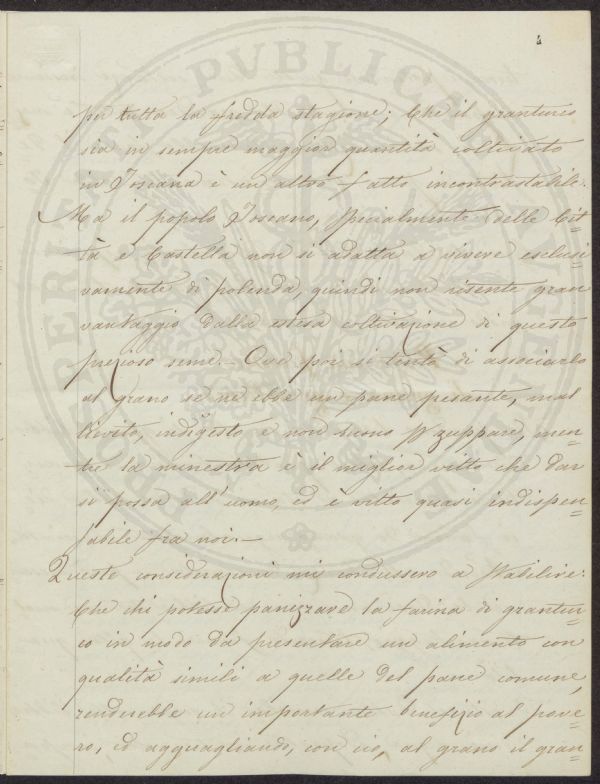 4
per tutta la fredda stagione; Che il granturco
sia in sempre maggior quantità coltivato
in Toscana è un altro fatto incontrastabile.
Ma il popolo Toscano, specialmente delle Cit=
tà e Castella non si adatta a vivere esclusi=
vamente di polenda, quindi non risente gran
vantaggio dalla estesa coltivazione di questo
prezioso seme. - Ove poi si tentò di associarlo
al grano se ne ebbe un pane pesante, mal
lievito, indigesto e non buono p zuppare, men=
tre la minestra è il miglior vitto che dar
si possa all'uomo, ed è vitto quasi indispen=
sabile fra noi. -
Queste considerazioni mi condussero a stabilire:
Che chi potesse panizzare la farina di grantur=
co in modo da presentare un alimento con
qualità simili a quelle del pane comune,
renderebbe un importante benefizio al pove=
ro, ed agguagliando, con ciò, al grano il gran=